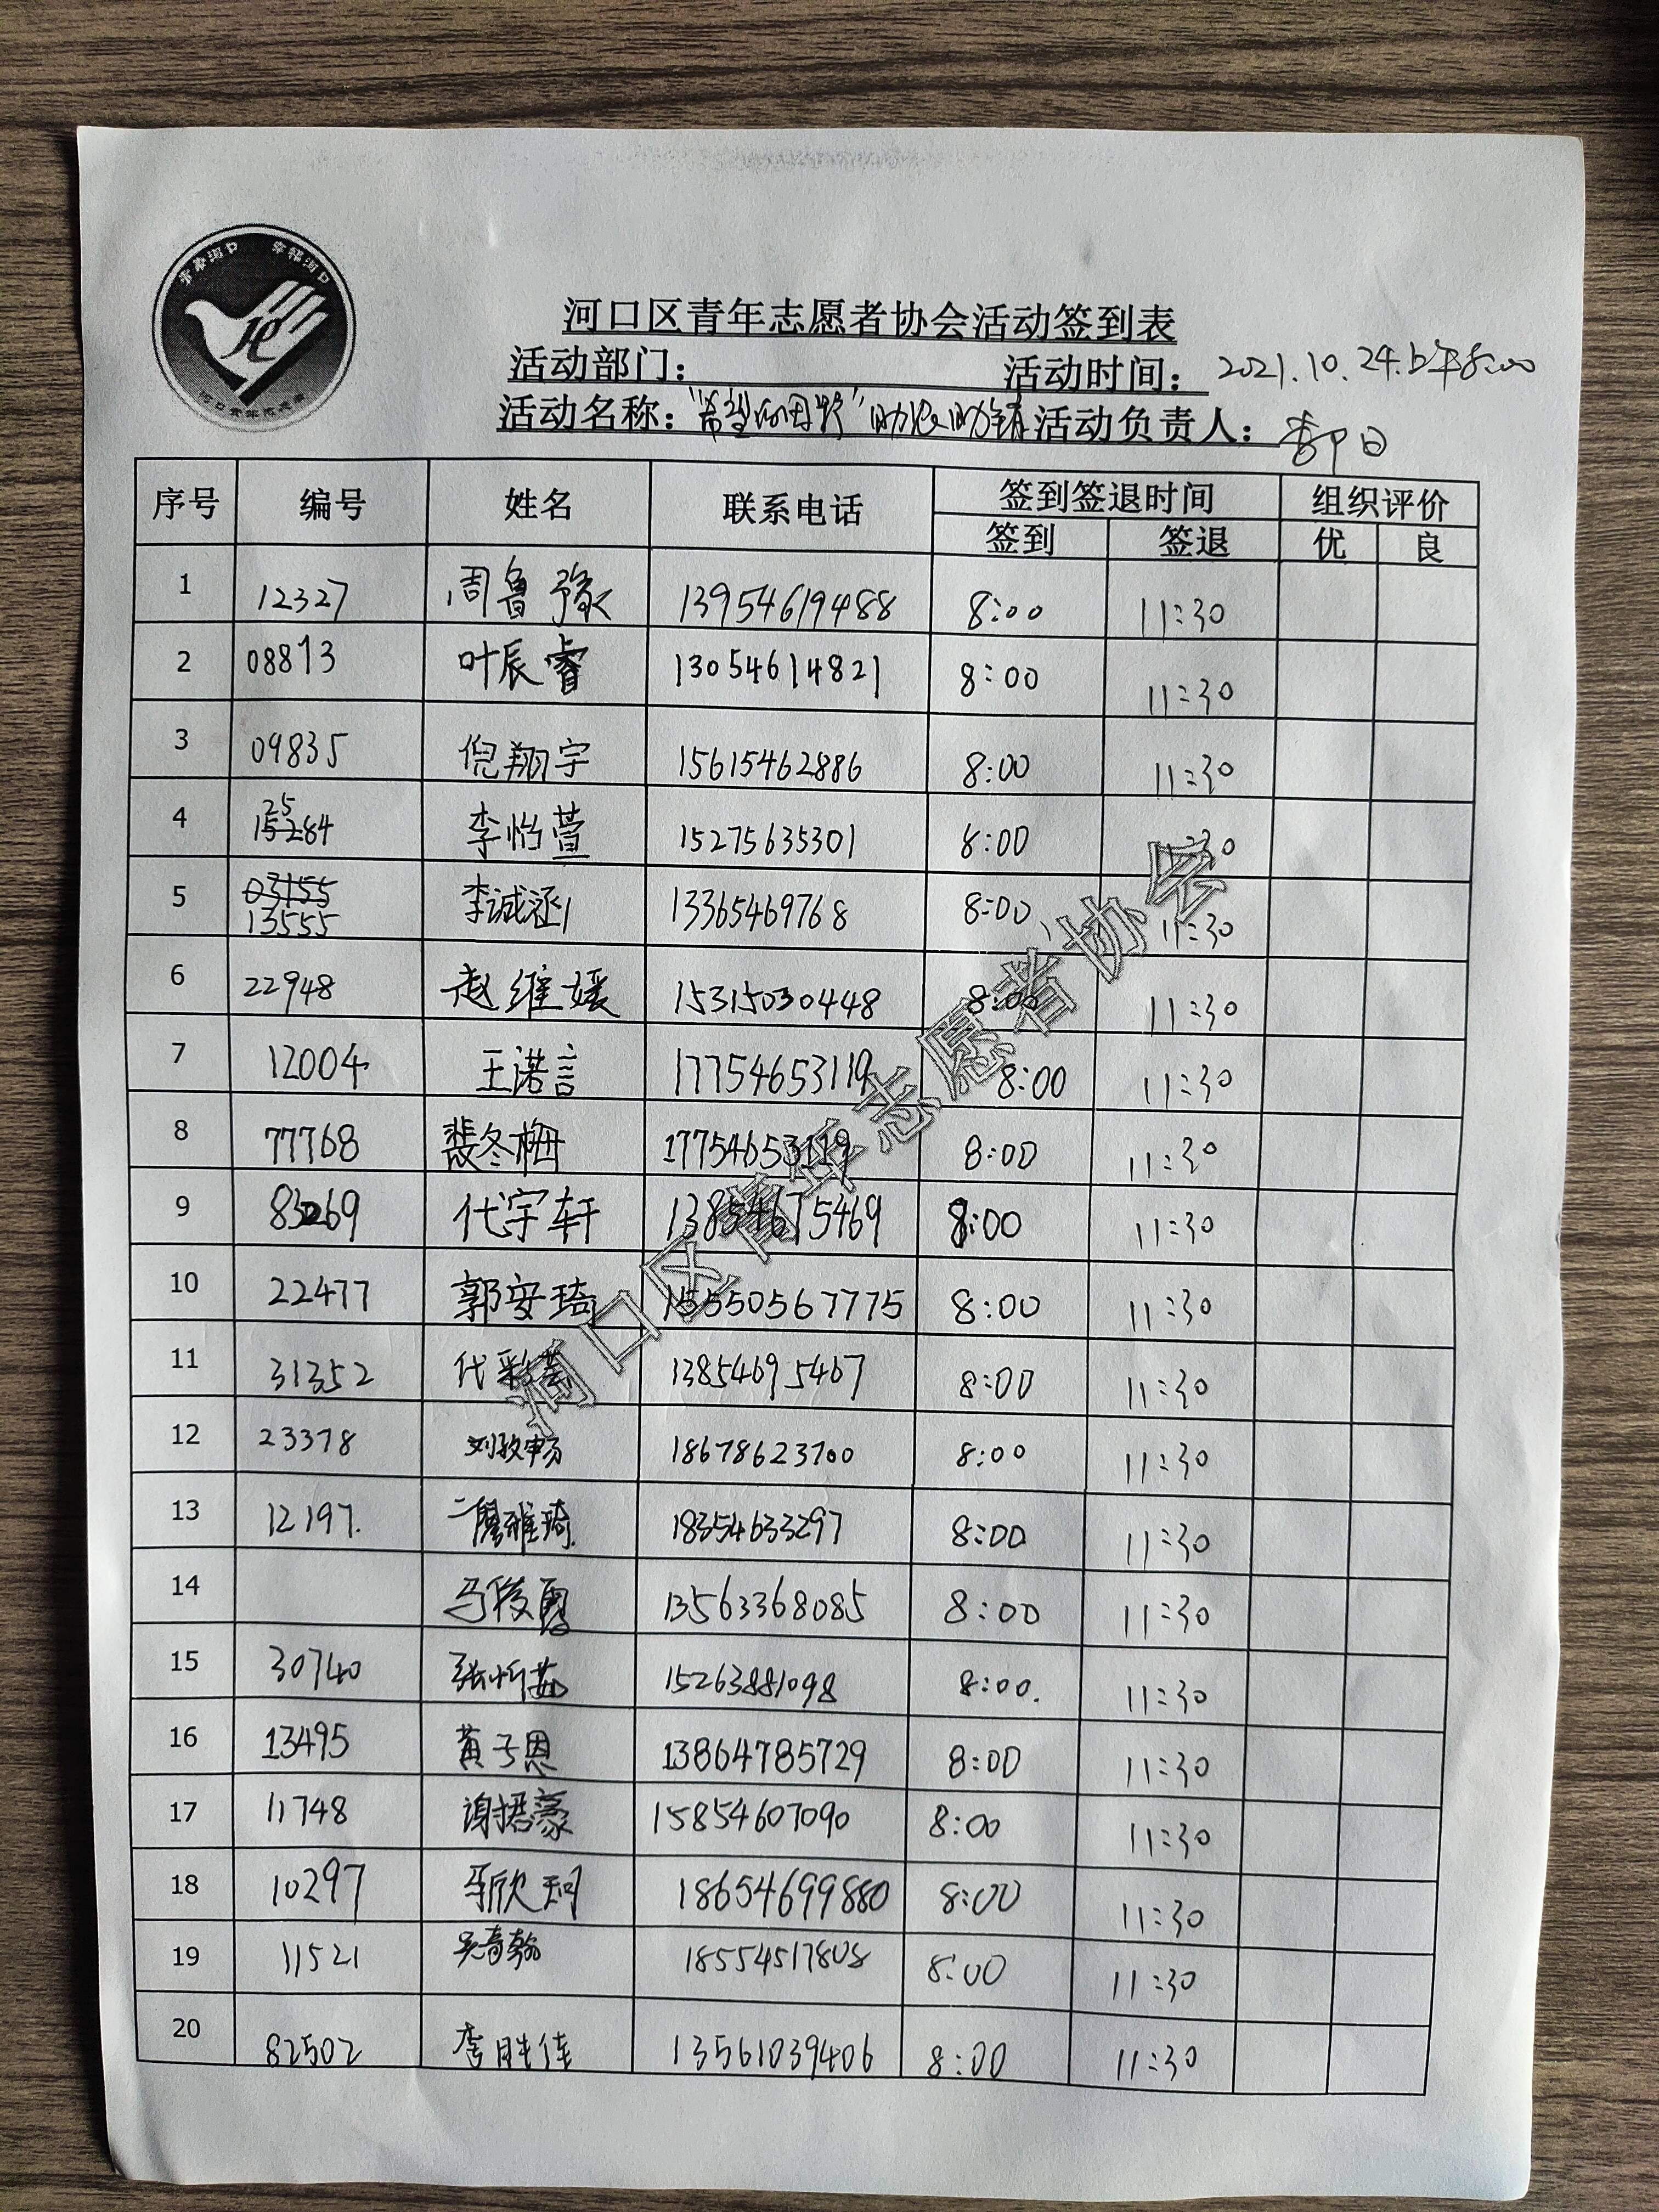 青春河口 幸福河口
河口区青年志愿者协会活动签到表
活动部门： 活动时间：2021.10.24.上午8:00
活动名称："希望的田野"助农助销 活动负责人：
序号 编号 姓名 联系电话 签到签退时间 组织评价
签到 签退 优 良
1 12327 周鲁豫 13954619488 8:00 11:30
2 08813 叶辰睿 13054614821 8:00 11:30
3 09835 倪翔宇 15615462886 8:00 11:30
4 25284 李怡萱 15275635301 8:00 11:30
5 03155 13555 李诚涵 13365469768 8:00 11:30
6 22948 赵维媛 15315030448 8:00 11:30
7 12004 王诺言 17754653119 8:00 11:30
8 77768 裴冬梅 17754653119 8:00 11:30
9 83269 代宇轩 13854675469 8:00 11:30
10 22477 郭安琦 15550567775 8:00 11:30
11 31352 代彩 13854695467 8:00 11:30
12 23378 刘畅 18678623700 8:00 11:30
13 12197. 雅琦. 18354633297 8:00 11:30
14 马俊 13563368085 8:00 11:30
15 30740 张忻茹 15263881098 8:00. 11:30
16 13495 黄子恩 13864785729 8:00 11:30
17 11748 谢豪 15854607090 8:00 11:30
18 10297 欣珂 18654699880 8:00 11:30
19 11521 吴奇翰 18554517808 8:00 11:30
20 82502 李胜佳 13561039406 8:00 11:30
河口区青年志愿者协会